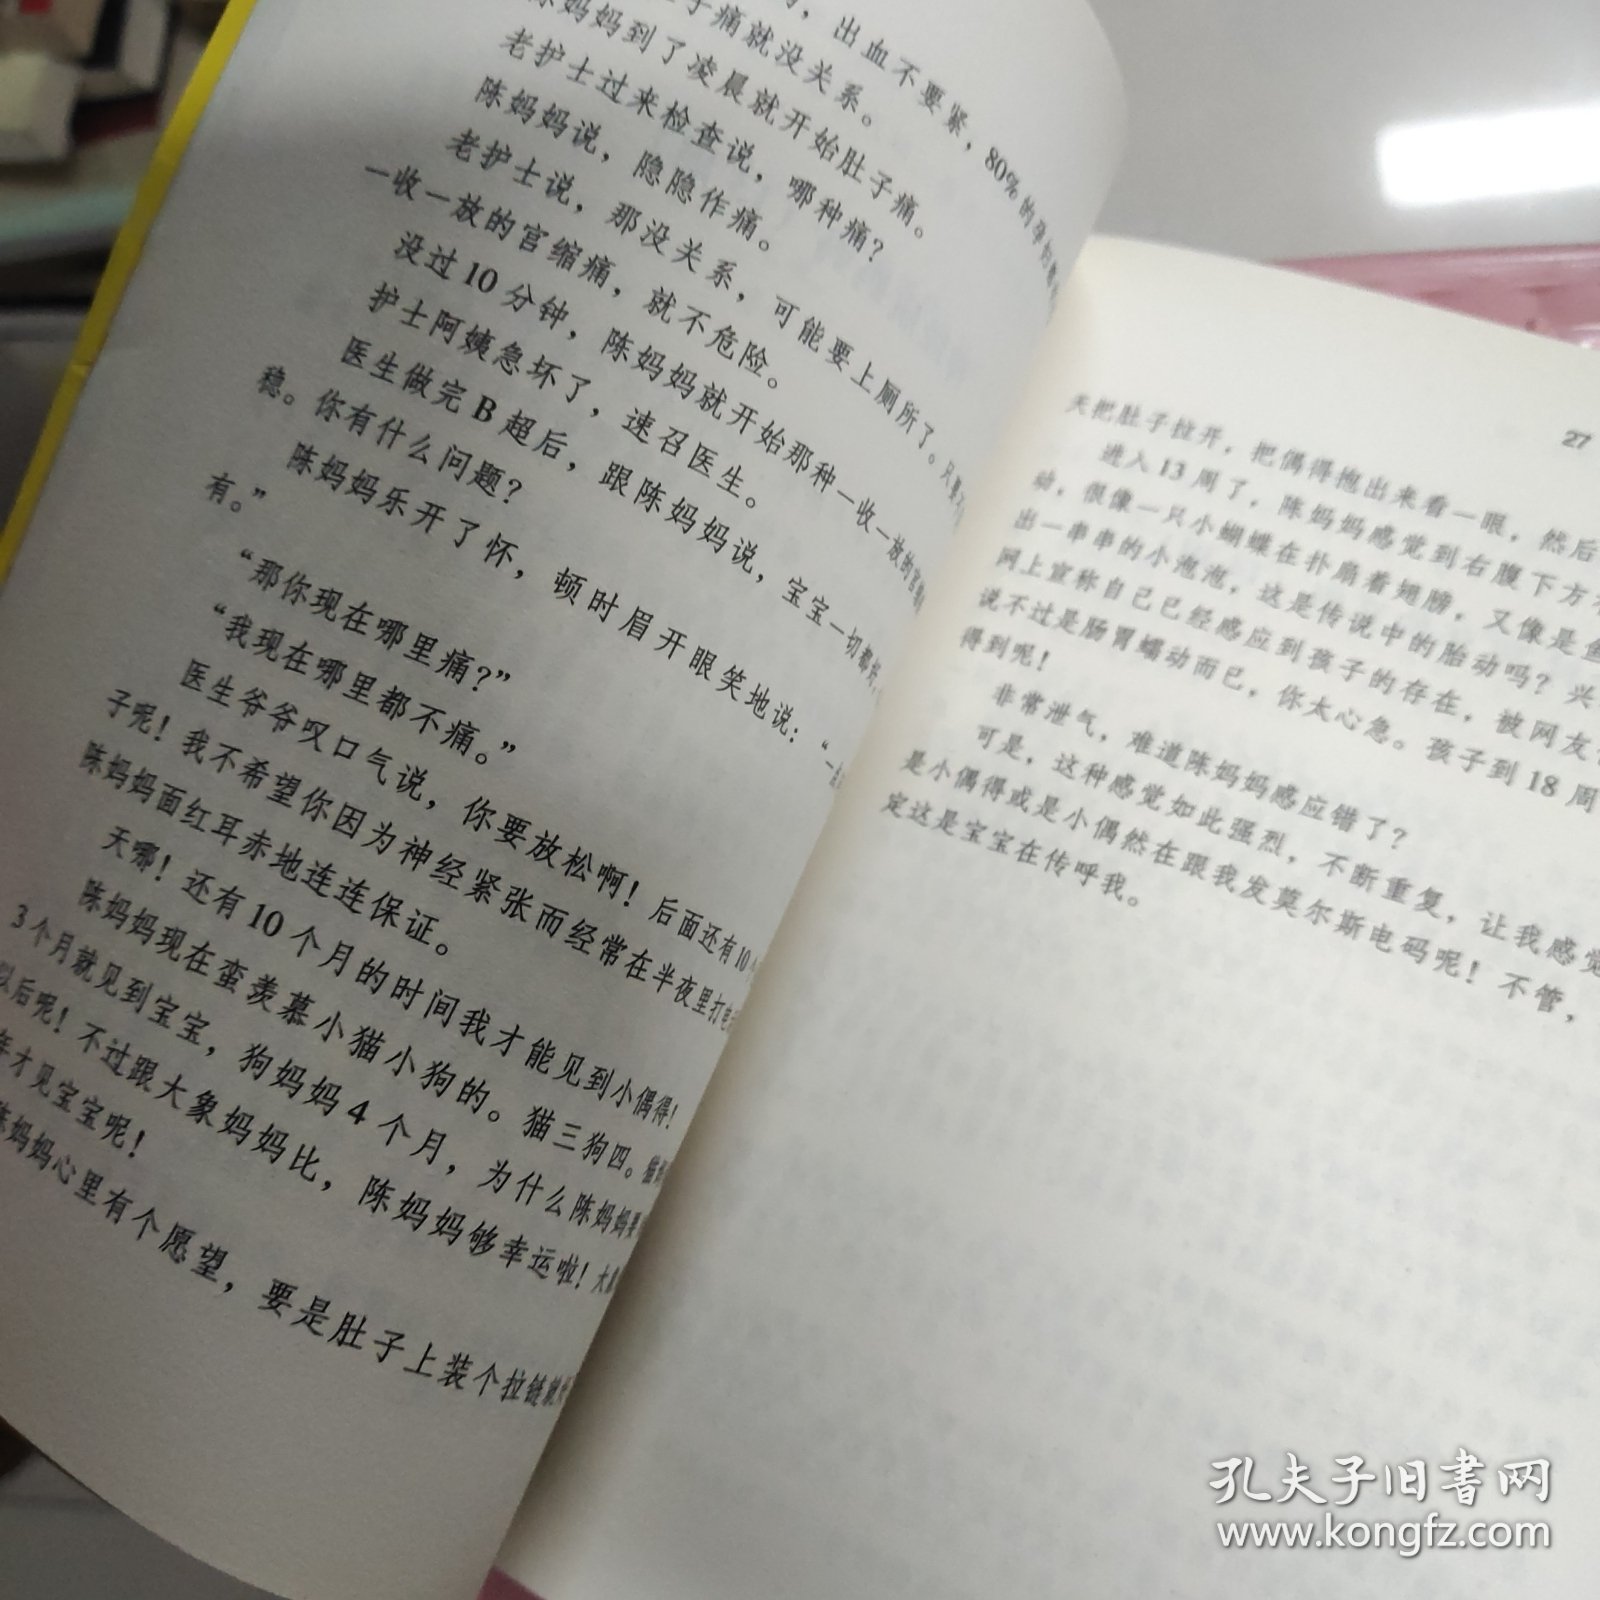 ，出血不要紧，80%的孕妇都
子痛就没关系。
陈妈妈到了凌晨就开始肚子痛。
老护士过来检查说，哪种痛？
陈妈妈说，隐隐作痛。
老护士说，那没关系，可能要上厕所了。只要不
一收一放的宫缩痛，就不危险。
没过10分钟，陈妈妈就开始那种一收一放的宫缩
护士阿姨急坏了，速召医生。
医生做完B超后，跟陈妈妈说，宝宝一切都好，
稳。你有什么问题？
陈妈妈乐开了怀，顿时眉开眼笑地说：“
有。”
“那你现在哪里痛？”
“我现在哪里都不痛。”
医生爷爷叹口气说，你要放松啊！后面还有10
子呢！我不希望你因为神经紧张而经常在半夜里打电
陈妈妈面红耳赤地连连保证。
天哪！还有10个月的时间我才能见到小偶得！
陈妈妈现在蛮羡慕小猫小狗的。猫三狗四。猫
3个月就见到宝宝，狗妈妈4个月，为什么陈妈妈要
以后呢！不过跟大象妈妈比，陈妈妈够幸运啦！大
年才见宝宝呢！
陈妈妈心里有个愿望，要是肚子上装个拉链就
27
天把肚子拉开，把偶得抱出来看一眼，然后
进入13周了，陈妈妈感觉到右腹下方有
动，很像一只小蝴蝶在扑扇着翅膀，又像是鱼
出一串串的小泡泡，这是传说中的胎动吗？兴
网上宣称自己已经感应到孩子的存在，被网友
说不过是肠胃蠕动而已，你太心急。孩子到18周
得到呢！
非常泄气，难道陈妈妈感应错了？
可是，这种感觉如此强烈，不断重复，让我感觉
是小偶得或是小偶然在跟我发莫尔斯电码呢！不管，
定这是宝宝在传呼我。
孔夫子旧书网
www.kongfz.com